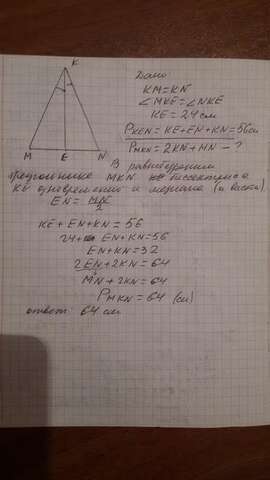 K
M E N
Дано
KM = KN
∠MKE = ∠NKE
KE = 24 см
P_KEN = KE + EN + KN = 56 см
P_MKN = 2KN + MN - ?
В равнобедренном
треугольнике MKN биссектриса
KE одновременно и медиана (и высота)
EN = /2
KE + EN + KN = 56
24 + EN + KN = 56
EN + KN = 32
2EN + 2KN = 64
MN + 2KN = 64
P_MKN = 64 (см)
ответ: 64 см